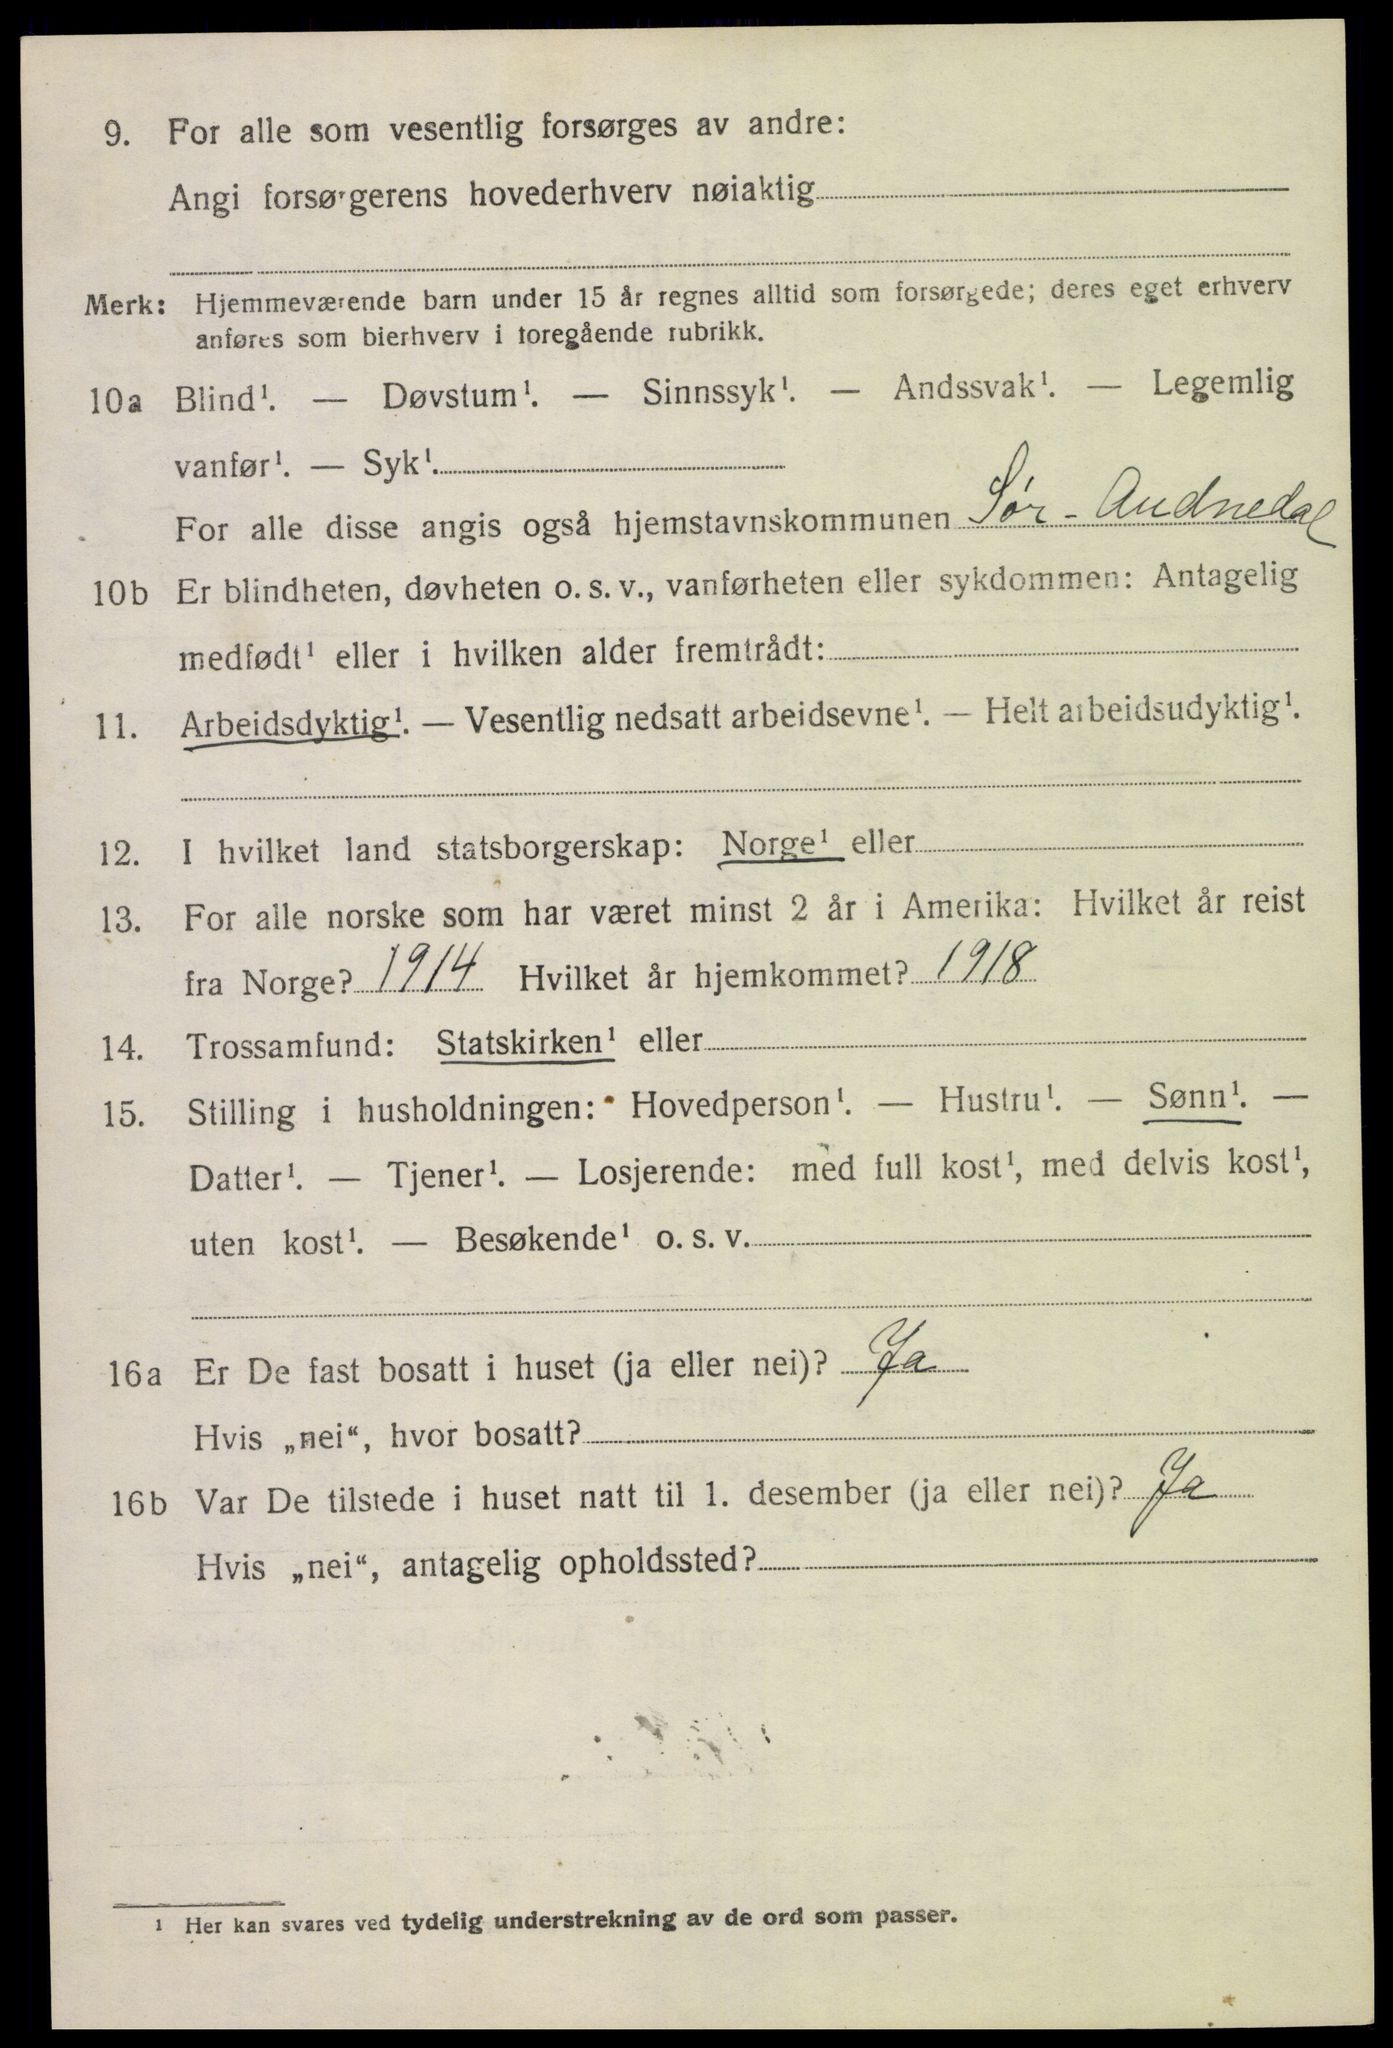 9. For alle som vesentlig forsørges av andre:
Angi forsørgerens hovederhverv nøiaktig
Merk: Hjemmeværende barn under 15 år regnes alltid som forsørgede; deres eget erhverv
anføres som bierhverv i foregående rubrikk.
10a Blind¹. — Døvstum¹. — Sinnssyk¹. — Andssvak¹. — Legemlig
vanfør¹. — Syk¹.
For alle disse angis også hjemstavnskommunen Sør-Audnedal
10b Er blindheten, døvheten o. s. v., vanførheten eller sykdommen: Antagelig
medfødt¹ eller i hvilken alder fremtrådt:
11. Arbeidsdyktig¹. — Vesentlig nedsatt arbeidsevne¹. — Helt arbeidsudyktig¹.
12. I hvilket land statsborgerskap: Norge¹ eller
13. For alle norske som har været minst 2 år i Amerika: Hvilket år reist
fra Norge? 1914 Hvilket år hjemkommet? 1918
14. Trossamfund: Statskirken¹ eller
15. Stilling i husholdningen: Hovedperson¹. — Hustru¹. — Sønn¹. —
Datter¹. — Tjener¹. — Losjerende: med full kost¹, med delvis kost¹,
uten kost¹. — Besøkende¹ o. s. v.
16a Er De fast bosatt i huset (ja eller nei)? Ja
Hvis „nei“, hvor bosatt?
16b Var De tilstede i huset natt til 1. desember (ja eller nei)? Ja
Hvis „nei“, antagelig opholdssted?
¹ Her kan svares ved tydelig understrekning av de ord som passer.